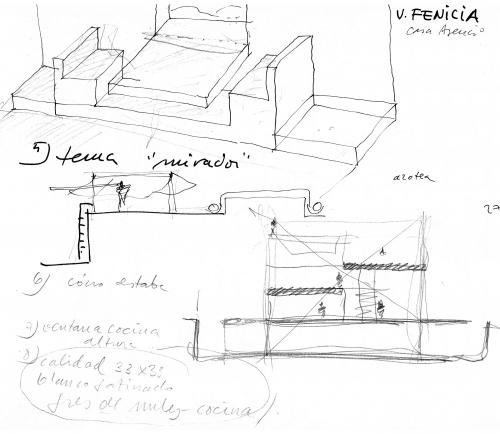 V. FENICIA
Casa Asencio
5) tema "mirador"
azotea
27
6) cómo estaba
7) ventana cocina
altura
8) calidad 33x33
blanco satinado
gres de cocina